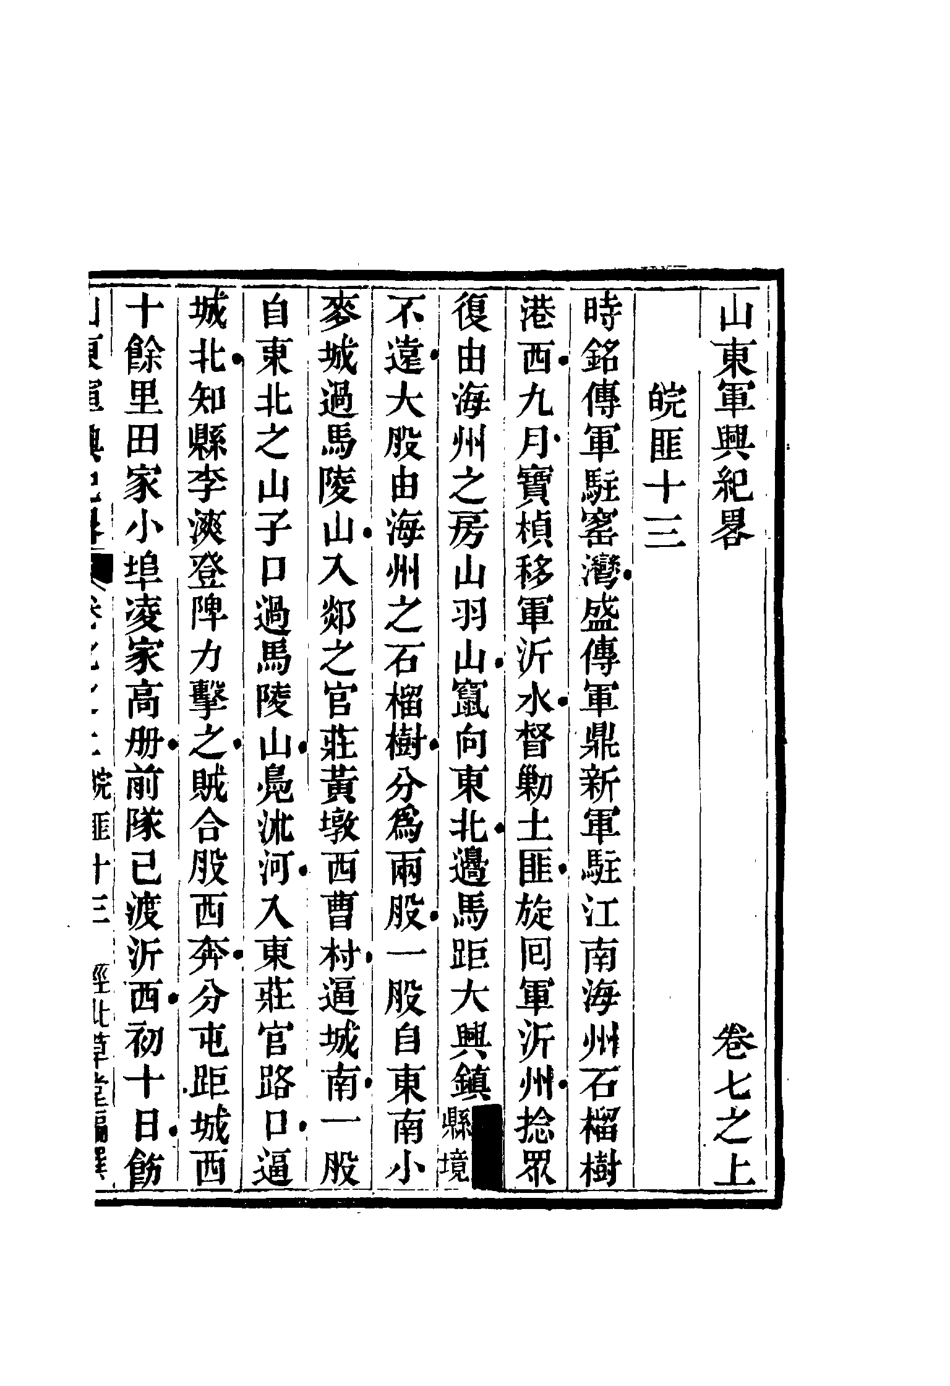 山東軍興紀畧 卷七之上
皖匪十三
時銘傳軍駐窰灣盛傳軍鼎新軍駐江南海州石榴樹
港西九月寶楨移軍沂水督勦土匪旋囘軍沂州捻眾
復由海州之房山羽山竄向東北邊馬距大興鎮縣境
不遠大股由海州之石榴樹分爲兩股一股自東南小
麥城過馬陵山入郯之官莊黃墩西曹村逼城南一股
自東北之山子口過馬陵山鳧沭河入東莊官路口逼
城北知縣李溹登陴力擊之賊合股西奔分屯距城西
十餘里田家小埠凌家高册前隊已渡沂西初十日飭
山東軍興紀畧 卷七之上 皖匪十三 經北草堂編撰